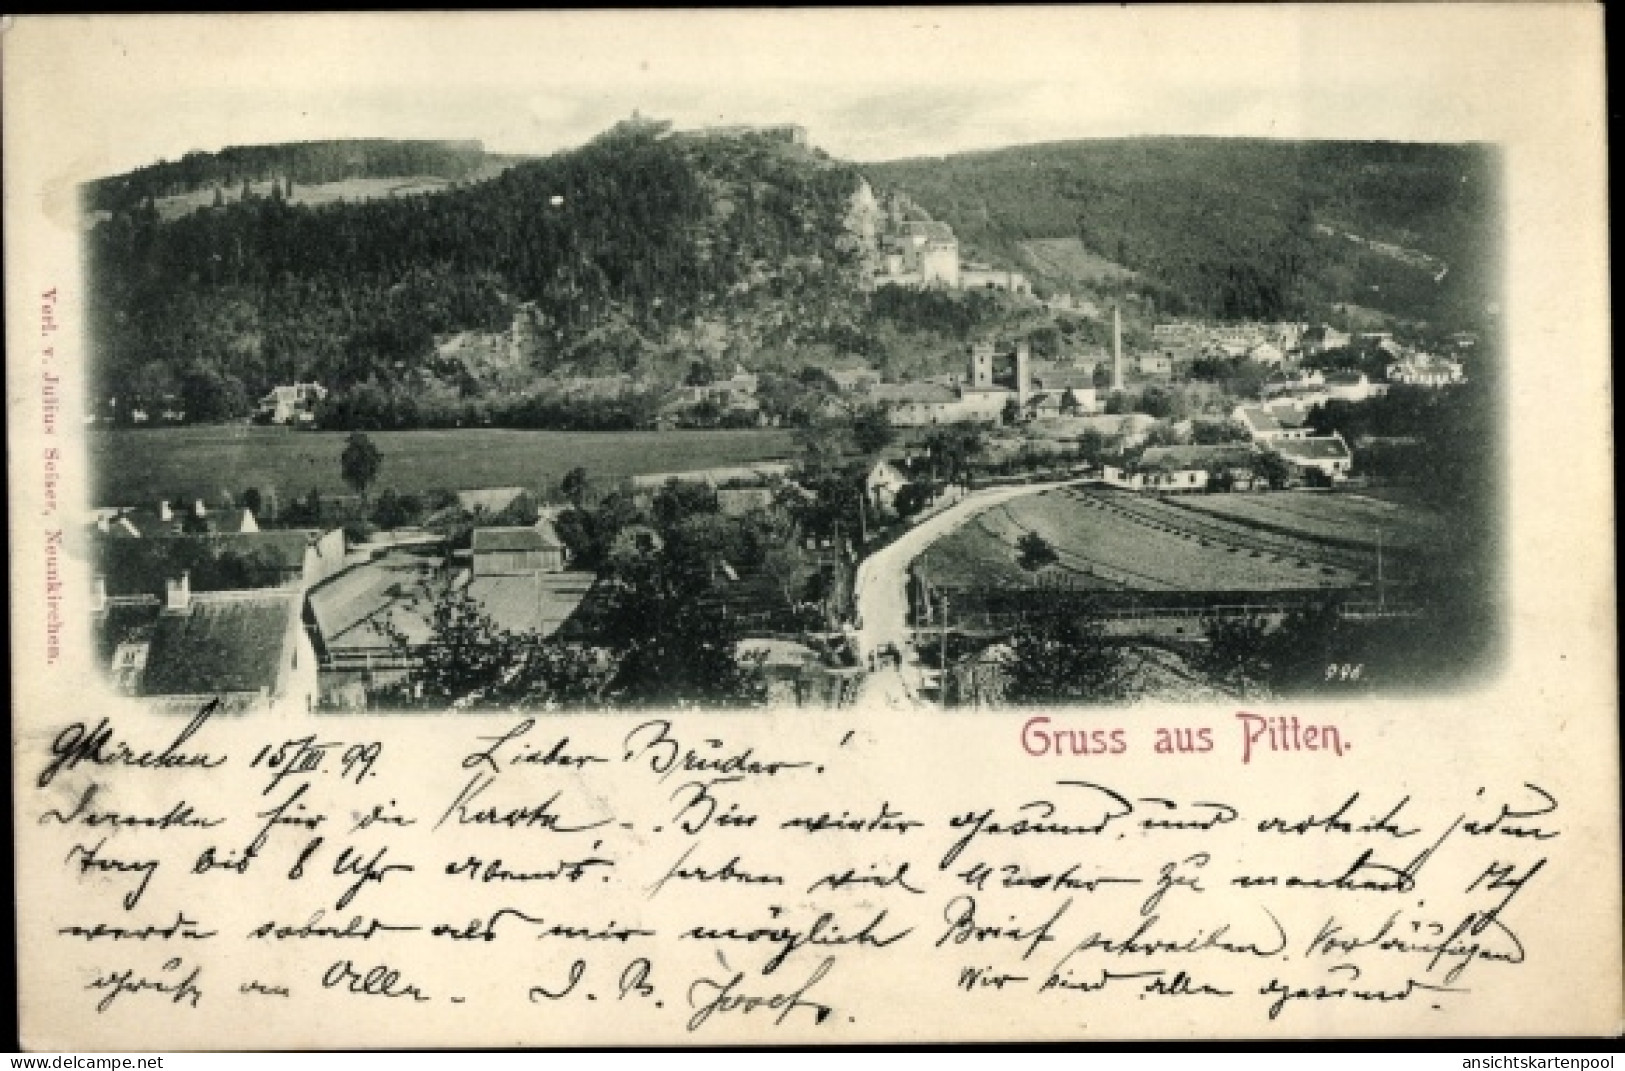 Verl. v. Julius Seiser, Neunkirchen.
996
Gruss aus Pitten.
Nkirchen 15/III. 99. Lieber Bruder!
Danke für die Karte. Bin wieder gesund, und arbeite jeden
Tag bis 8 Uhr abends. haben viel Muster zu machen. Ich
werde sobald als mir möglich Brief schreiben. Vorläufigen
Gruß an Alle. D. B. Josef. Wir sind alle gesund.
delcampe.net
ansichtskartenpool